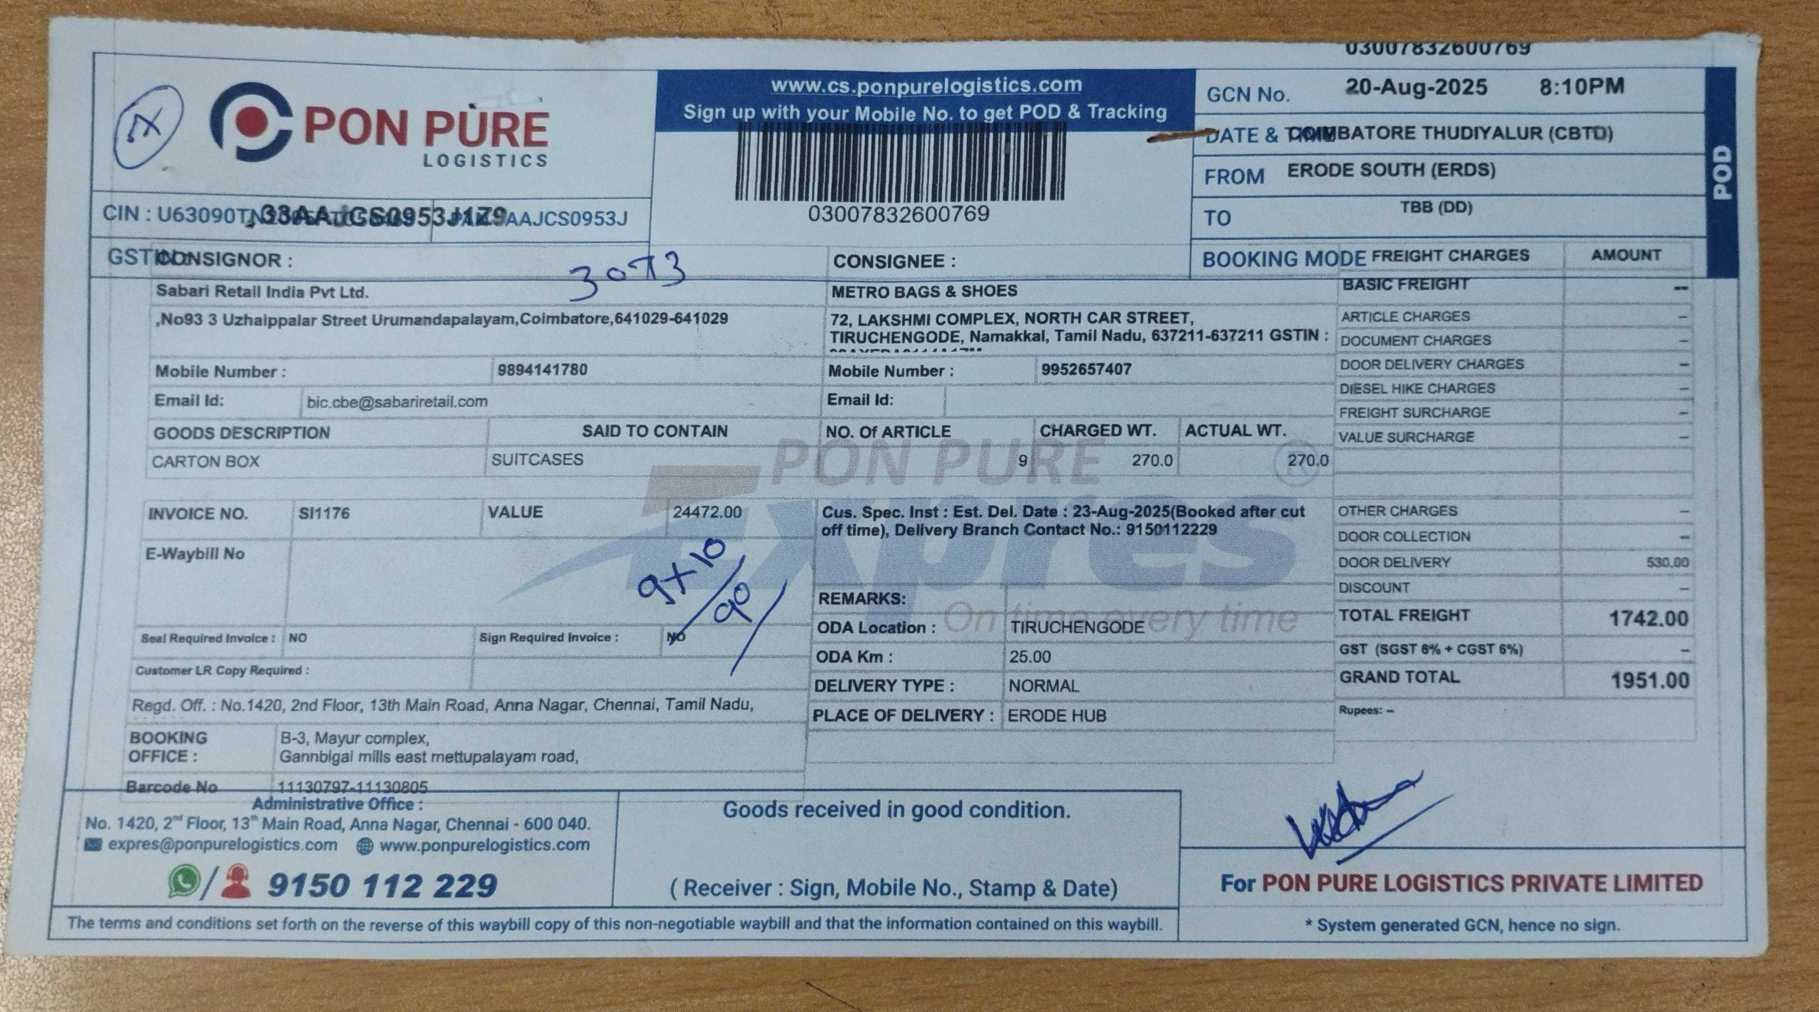 03007832600769
PON PURE
LOGISTICS
www.cs.ponpurelogistics.com
Sign up with your Mobile No. to get POD & Tracking
03007832600769
GCN No. 20-Aug-2025 8:10PM
DATE & TIME COIMBATORE THUDIYALUR (CBTD)
FROM ERODE SOUTH (ERDS)
TO TBB (DD)
POD
CIN : U63090TN 33AAJCS0953J1Z9 PAN : AAJCS0953J
GSTIN :
BOOKING MODE
CONSIGNOR :
3073
CONSIGNEE :
FREIGHT CHARGES AMOUNT
Sabari Retail India Pvt Ltd.
,No93 3 Uzhaippalar Street Urumandapalayam,Coimbatore,641029-641029
METRO BAGS & SHOES
72, LAKSHMI COMPLEX, NORTH CAR STREET,
TIRUCHENGODE, Namakkal, Tamil Nadu, 637211-637211 GSTIN :
Mobile Number : 9894141780
Mobile Number : 9952657407
Email Id: bic.cbe@sabariretail.com
Email Id:
GOODS DESCRIPTION SAID TO CONTAIN NO. Of ARTICLE CHARGED WT. ACTUAL WT.
CARTON BOX SUITCASES 9 270.0 270.0
PON PURE
Expres
On time every time
INVOICE NO. SI1176 VALUE 24472.00
E-Waybill No
9x10
90
Seal Required Invoice : NO Sign Required Invoice : NO
Customer LR Copy Required :
Cus. Spec. Inst : Est. Del. Date : 23-Aug-2025(Booked after cut
off time), Delivery Branch Contact No.: 9150112229
REMARKS:
ODA Location : TIRUCHENGODE
ODA Km : 25.00
DELIVERY TYPE : NORMAL
PLACE OF DELIVERY : ERODE HUB
BASIC FREIGHT --
ARTICLE CHARGES –
DOCUMENT CHARGES –
DOOR DELIVERY CHARGES –
DIESEL HIKE CHARGES –
FREIGHT SURCHARGE –
VALUE SURCHARGE –
OTHER CHARGES –
DOOR COLLECTION –
DOOR DELIVERY 530.00
DISCOUNT –
TOTAL FREIGHT 1742.00
GST (SGST 6% + CGST 6%) –
GRAND TOTAL 1951.00
Rupees: –
Regd. Off. : No.1420, 2nd Floor, 13th Main Road, Anna Nagar, Chennai, Tamil Nadu,
BOOKING OFFICE : B-3, Mayur complex,
Gannbigai mills east mettupalayam road,
Barcode No 11130797-11130805
Administrative Office :
No. 1420, 2nd Floor, 13th Main Road, Anna Nagar, Chennai - 600 040.
expres@ponpurelogistics.com www.ponpurelogistics.com
/ 9150 112 229
Goods received in good condition.
( Receiver : Sign, Mobile No., Stamp & Date)
For PON PURE LOGISTICS PRIVATE LIMITED
The terms and conditions set forth on the reverse of this waybill copy of this non-negotiable waybill and that the information contained on this waybill.
* System generated GCN, hence no sign.